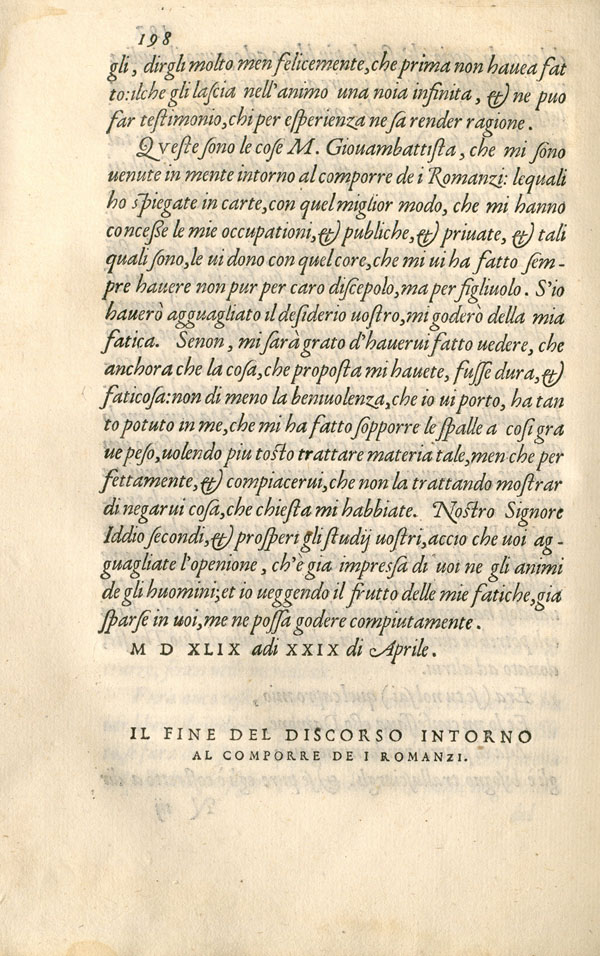 198
gli, dirgli molto men felicemente, che prima non hauea fat
to: ilche gli lascia nell'animo una noia infinita, & ne puo
far testimonio, chi per esperienza ne sa render ragione.
Queste sono le cose M. Giouambattista, che mi sono
uenute in mente intorno al comporre de i Romanzi: lequali
ho spiegate in carte, con quel miglior modo, che mi hanno
concesse le mie occupationi, & publiche, & priuate, & tali
quali sono, le ui dono con quel core, che mi ui ha fatto sem-
pre hauere non pur per caro discepolo, ma per figliuolo. S'io
hauerò agguagliato il desiderio uostro, mi goderò della mia
fatica. Senon, mi sarà grato d'hauerui fatto uedere, che
anchora che la cosa, che proposta mi hauete, fusse dura, &
faticosa: non di meno la beniuolenza, che io ui porto, ha tan
to potuto in me, che mi ha fatto sopporre le spalle a cosi gra
ue peso, uolendo piu tosto trattare materia tale, men che per
fettamente, & compiacerui, che non la trattando mostrar
di negarui cosa, che chiesta mi habbiate. Nostro Signore
Iddio secondi, & prosperi gli studij uostri, accio che uoi ag-
guagliate l'openione, ch'è gia impressa di uoi ne gli animi
de gli huomini; et io ueggendo il frutto delle mie fatiche, gia
sparse in uoi, me ne possa godere compiutamente.
M D XLIX adi XXIX di Aprile.
IL FINE DEL DISCORSO INTORNO
AL COMPORRE DE I ROMANZI.